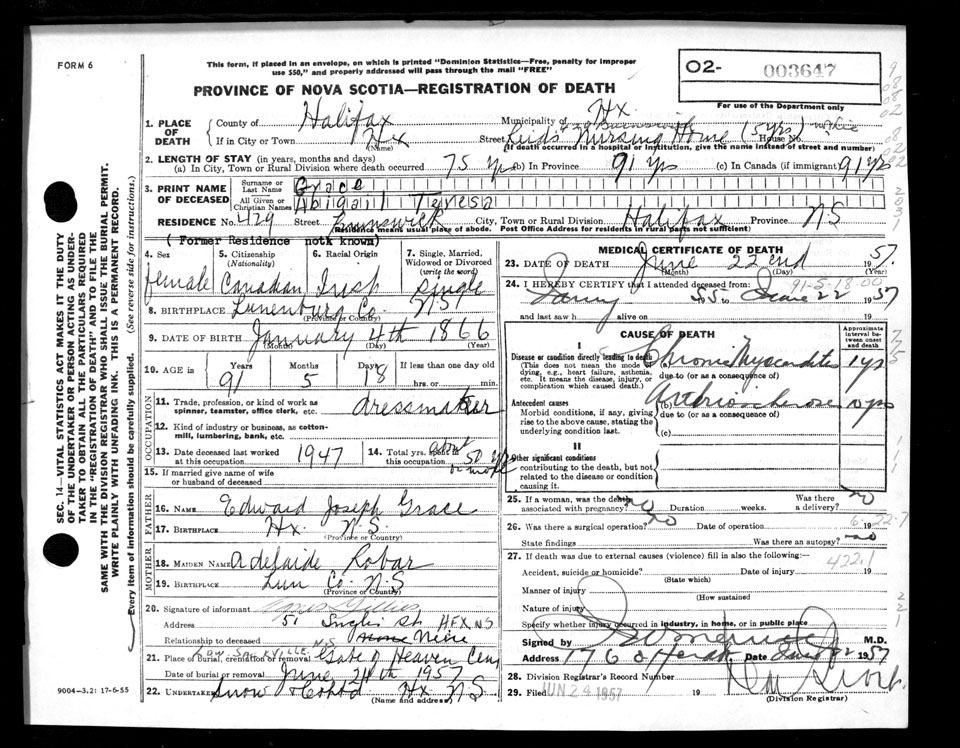 FORM 6
This form, if placed in an envelope, on which is printed "Dominion Statistics—Free, penalty for improper
use $50," and properly addressed will pass through the mail "FREE"
O2- 003647
For use of the Department only
PROVINCE OF NOVA SCOTIA—REGISTRATION OF DEATH
1. PLACE OF DEATH
County of Halifax Municipality of Hx.
If in City or Town Hx (Name) Street Nursing Home (5 yrs) House No.
(If death occurred in a hospital or institution, give the name instead of street and number)
2. LENGTH OF STAY (in years, months and days)
(a) In City, Town or Rural Division where death occurred 75 yrs (b) In Province 91 yrs (c) In Canada (if immigrant) 91 yrs
3. PRINT NAME OF DECEASED
Surname or Last Name Grace
All Given or Christian Names Abigail Teresa
RESIDENCE No. 429 Street Brunswick City, Town or Rural Division Halifax Province NS
(Residence means usual place of abode. Post Office Address for residents in rural parts not sufficient)
(Former Residence not known)
4. Sex female
5. Citizenship (Nationality) Canadian
6. Racial Origin Irish
7. Single, Married, Widowed or Divorced (write the word) single
8. BIRTHPLACE Lunenburg Co. N S
(Province or Country)
9. DATE OF BIRTH January 4th 1866
(Month) (Day) (Year)
10. AGE in Years 91 Months 5 Days 18 If less than one day old
hrs. or min.
OCCUPATION
11. Trade, profession, or kind of work as spinner, teamster, office clerk, etc. dressmaker
12. Kind of industry or business, as cotton-mill, lumbering, bank, etc.
13. Date deceased last worked at this occupation 1947
14. Total yrs. spent in this occupation about 50 yrs or more
15. If married give name of wife or husband of deceased
FATHER
16. NAME Edward Joseph Grace
17. BIRTHPLACE Hx N.S.
(Province or Country)
MOTHER
18. MAIDEN NAME Adelaide Robar
19. BIRTHPLACE Lun Co. N.S
(Province or Country)
20. Signature of informant
Address 51 St HFX, NS
Relationship to deceased Niece
21. Place of Burial, cremation or removal SACKVILLE N.S Gate of Heaven Cem
Date of burial or removal June 24th 1957
22. Undertaker Snow Hx N.S
(Name and address)
9004-3.2: 17-6-55
MEDICAL CERTIFICATE OF DEATH
23. DATE OF DEATH June 22nd 1957.
(Month) (Day) (Year)
24. I HEREBY CERTIFY that I attended deceased from:
91-5-18.00
55 to June 22 1957
and last saw h alive on
CAUSE OF DEATH
Approximate interval between onset and death
I
Disease or condition directly leading to death
(This does not mean the mode of dying, e.g., heart failure, asthenia, etc. It means the disease, injury, or complication which caused death.)
(a) Chronic Myocarditis 1 yr
due to (or as a consequence of)
Antecedent causes
Morbid conditions, if any, giving rise to the above cause, stating the underlying condition last.
(b) Arteriosclerosis 10 yrs
due to (or as a consequence of)
(c)
II
Other significant conditions
contributing to the death, but not related to the disease or condition causing it.
25. If a woman, was the death associated with pregnancy? no Duration weeks. Was there a delivery? no
26. Was there a surgical operation? no Date of operation 19
State findings Was there an autopsy? no
27. If death was due to external causes (violence) fill in also the following:—
422.1
Accident, suicide or homicide? Date of injury 19
(State which)
Manner of injury
(How sustained)
Nature of injury
Specify whether injury occurred in industry, in home, or in public place
Signed by M.D.
Address Date June 22 1957
28. Division Registrar's Record Number
29. Filed JUN 24 1957 19
(Division Registrar)
SEC. 14—VITAL STATISTICS ACT MAKES IT THE DUTY
OF THE UNDERTAKER OR PERSON ACTING AS UNDER-
TAKER TO OBTAIN ALL THE PARTICULARS REQUIRED
IN THE "REGISTRATION OF DEATH" AND TO FILE THE
SAME WITH THE DIVISION REGISTRAR WHO SHALL ISSUE THE BURIAL PERMIT.
WRITE PLAINLY WITH UNFADING INK. THIS IS A PERMANENT RECORD.
Every item of information should be carefully supplied. (See reverse side for instructions.)